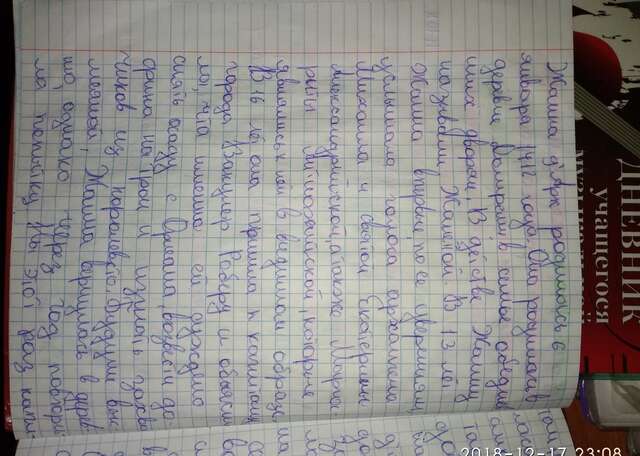 Жанна д'Арк родилась 6
января 1412 года. Она родилась в
деревне Домреми в семье обедне
вших дворян. В детстве Жанну
называли Жаннетой. В 13 лет
Жанна впервые по ее уверениям
услышала голоса архангела
Михаила и святой Екатерины
Александрийской, а также Марга
риты Антиохийской, которые
являлись к ней в видимом образе.
В 16 лет она пришла к капитану
города Вакулер Роберу и объяви
ла, что именно ей суждено
снять осаду с Орлеана, возвести до
фина на трон и изгнать захват
чиков из королевства. Будучи выс
меянной, Жанна вернулась в дерев
ню, однако через год повтори
ла попытку. На этот раз капи
ДНЕВНИК
учащегося
2018-12-17 23:08